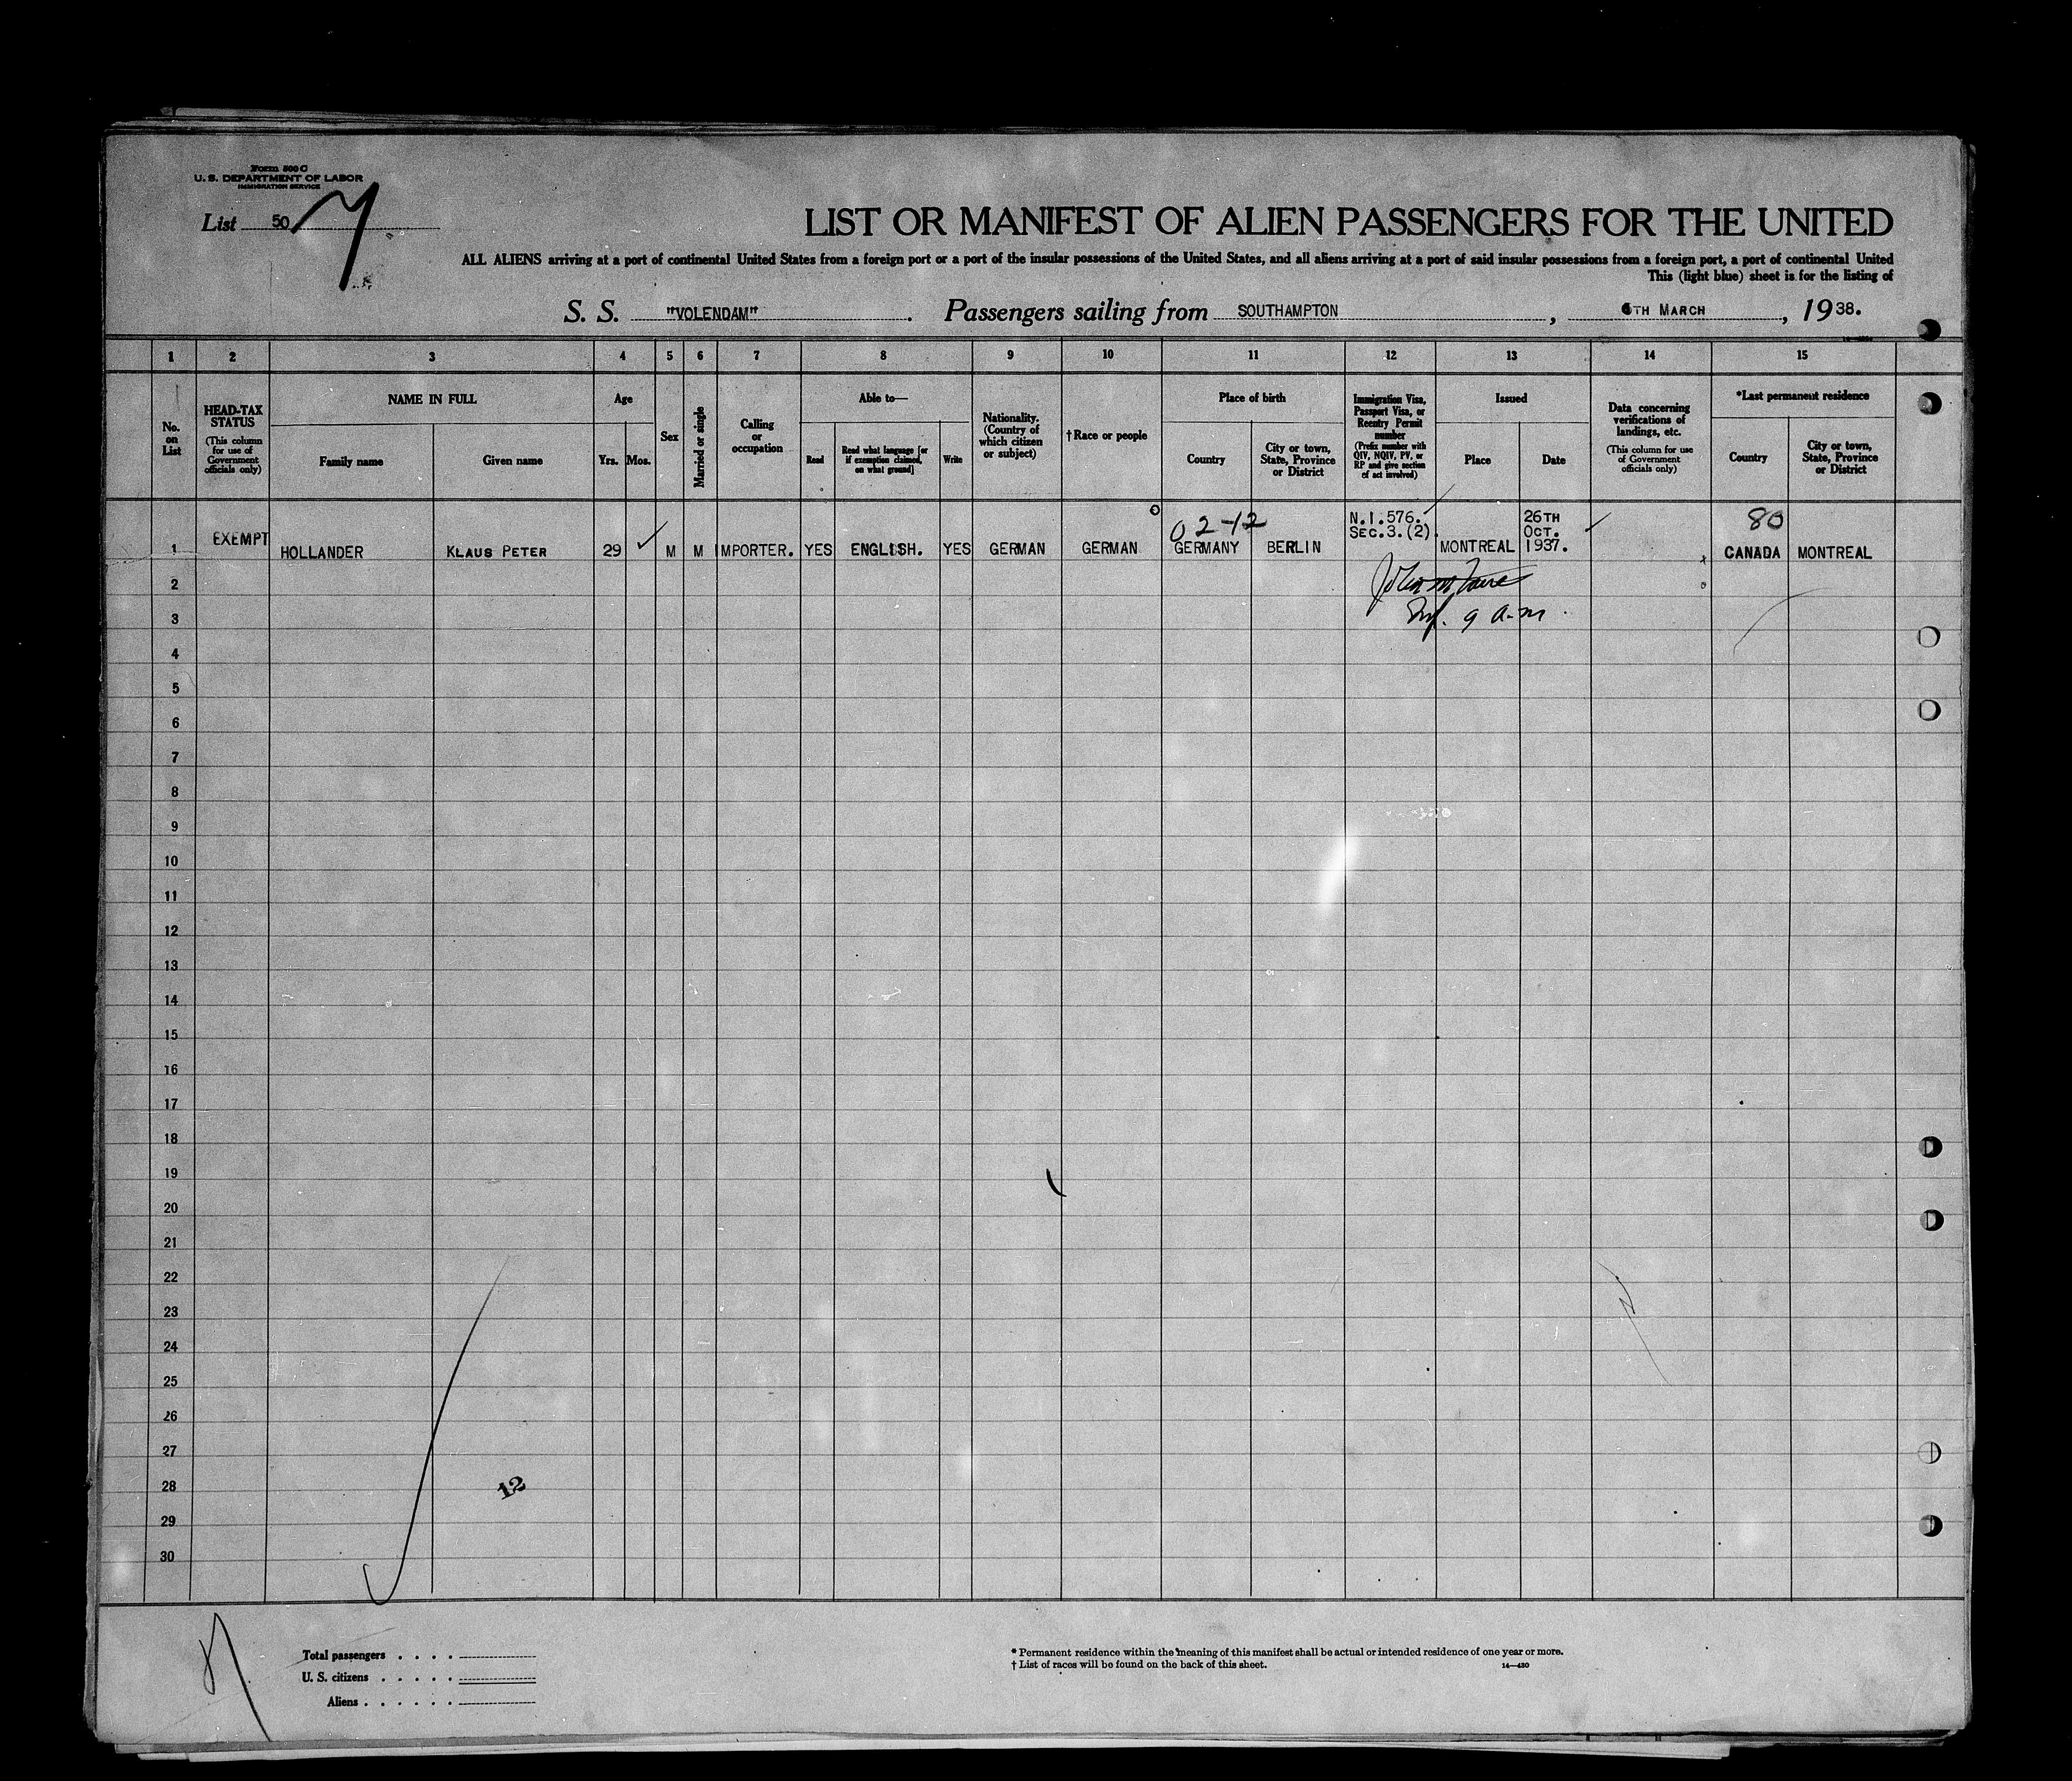 Form 500 C
U. S. DEPARTMENT OF LABOR
IMMIGRATION SERVICE
List 50
7
LIST OR MANIFEST OF ALIEN PASSENGERS FOR THE UNITED
ALL ALIENS arriving at a port of continental United States from a foreign port or a port of the insular possessions of the United States, and all aliens arriving at a port of said insular possessions from a foreign port, a port of continental United
This (light blue) sheet is for the listing of
S. S. "VOLENDAM". Passengers sailing from SOUTHAMPTON, 6TH MARCH, 1938.
1 2 3 4 5 6 7 8 9 10 11 12 13 14 15
No. on List
HEAD-TAX STATUS
(This column for use of Government officials only)
NAME IN FULL
Family name
Given name
Age
Yrs. Mos.
Sex
Married or single
Calling or occupation
Able to—
Read
Read what language [or if exemption claimed, on what ground]
Write
Nationality. (Country of which citizen or subject)
†Race or people
Place of birth
Country
City or town, State, Province or District
Immigration Visa, Passport Visa, or Reentry Permit number
(Prefix number with QIV, NQIV, PV, or RP and give section of act involved)
Issued
Place
Date
Data concerning verifications of landings, etc.
(This column for use of Government officials only)
*Last permanent residence
Country
City or town, State, Province or District
02-12
80
1 EXEMPT HOLLANDER KLAUS PETER 29 M M IMPORTER. YES ENGLISH. YES GERMAN GERMAN GERMANY BERLIN N.I.576. SEC.3.(2). MONTREAL 26TH OCT. 1937. CANADA MONTREAL
2
3
9 a.m.
4
5
6
7
8
9
10
11
12
13
14
15
16
17
18
19
20
21
22
23
24
25
26
27
28
29
30
12
Total passengers
U. S. citizens
Aliens
* Permanent residence within the meaning of this manifest shall be actual or intended residence of one year or more.
† List of races will be found on the back of this sheet.
14—430